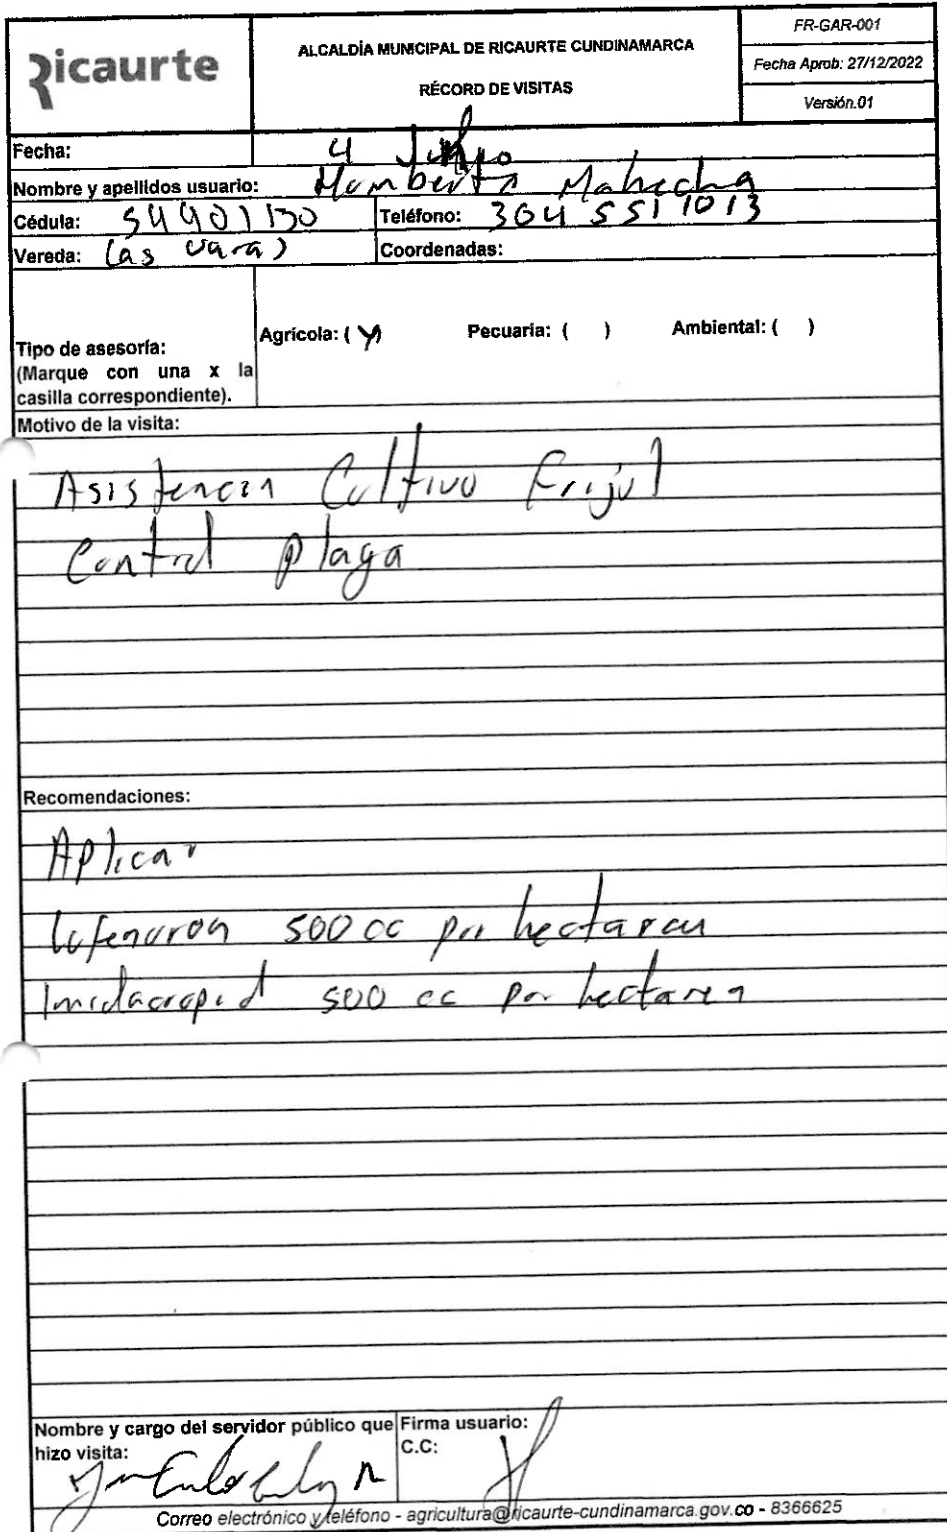 Ricaurte
ALCALDÍA MUNICIPAL DE RICAURTE CUNDINAMARCA
RÉCORD DE VISITAS
FR-GAR-001
Fecha Aprob: 27/12/2022
Versión.01
Fecha: 4
Nombre y apellidos usuario: Humberto Mahecha
Cédula: 54401130 Teléfono: 304 551 1013
Vereda: Las varas Coordenadas:
Tipo de asesoría:
(Marque con una x la
casilla correspondiente).
Agrícola: ( X ) Pecuaria: ( ) Ambiental: ( )
Motivo de la visita:
Asistencia Cultivo Frijol
Control plaga
Recomendaciones:
Aplicar
Lufenuron 500 cc por hectarea
Imidacropid 500 cc por hectarea
Nombre y cargo del servidor público que
hizo visita:
Firma usuario:
C.C:
Correo electrónico y teléfono - agricultura@ricaurte-cundinamarca.gov.co - 8366625